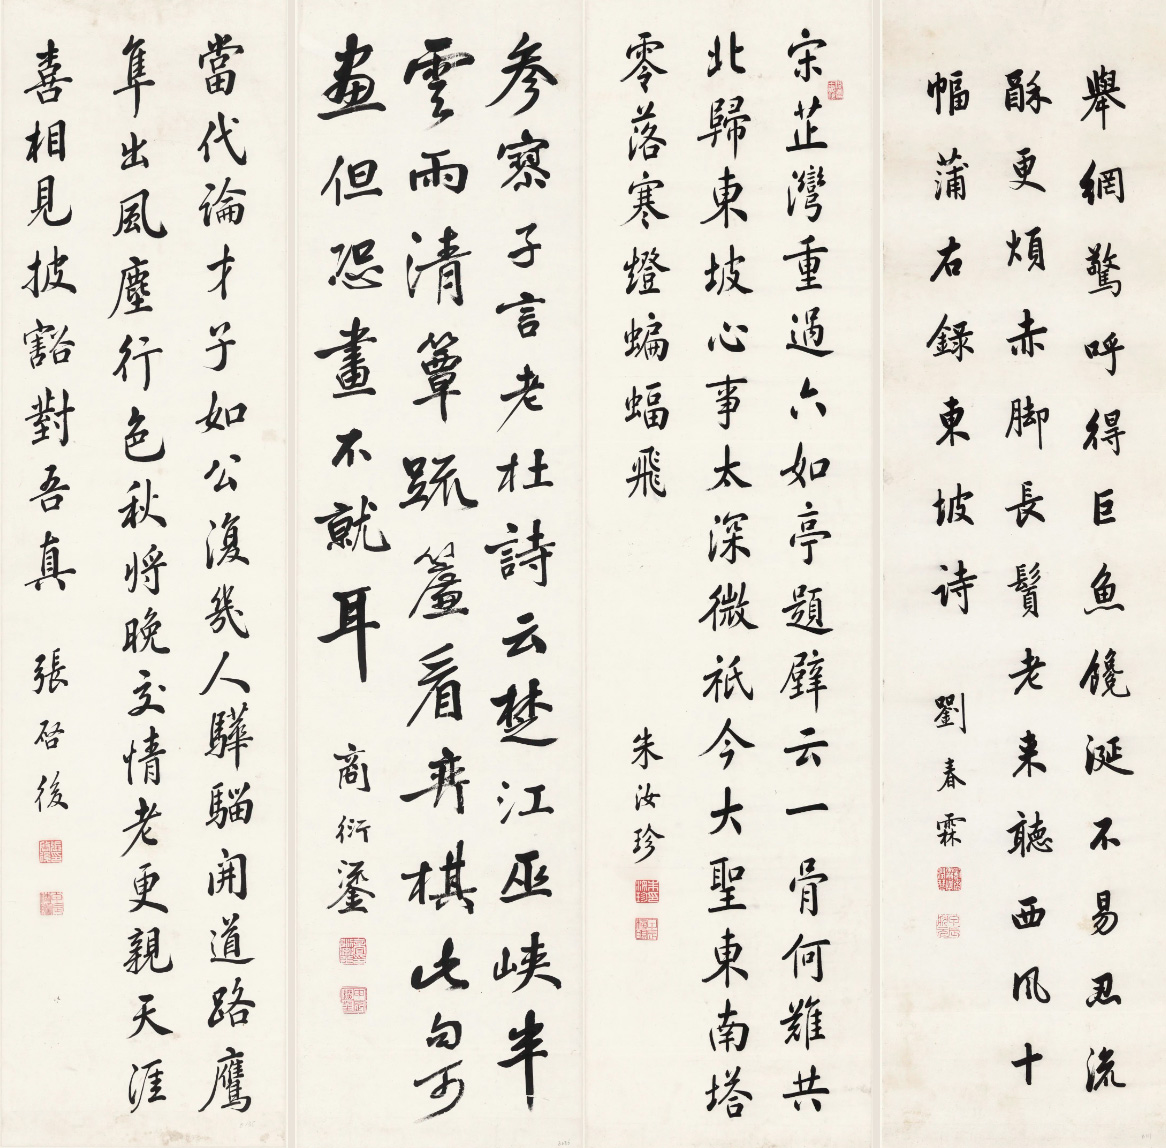 舉網驚呼得巨魚饞涎不易忍流
酥更煩赤脚長鬚老来聽西風十
幅蒲右錄東坡诗
劉春霖
宋芷灣重過六如亭題壁云一骨何難共
北歸東坡心事太深微祇今大聖東南塔
零落寒燈蝙蝠飛
朱汝珍
參寥子言老杜詩云楚江巫峽半
雲雨清簟疏簾看弈棋此句可
畫但恐畫不就耳
商衍鎏
當代論才子如公復幾人驊騮開道路鷹
隼出風塵行色秋將晚交情老更親天涯
喜相見披豁對吾真
張啓後